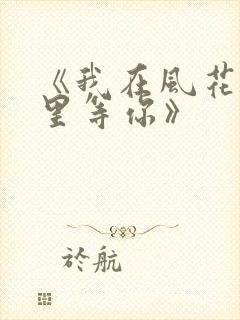 《我在風花
里等你》
於航